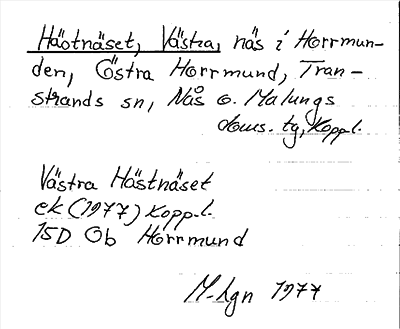 Hästnäset, Västra, näs i Horrmun-
den, Östra Horrmund, Tran-
strands sn, Nås o. Malungs
doms. tg, Koppl.
Västra Hästnäset
ek (1977) Koppl.
15D Ob Horrmund
M-Lgn 1977